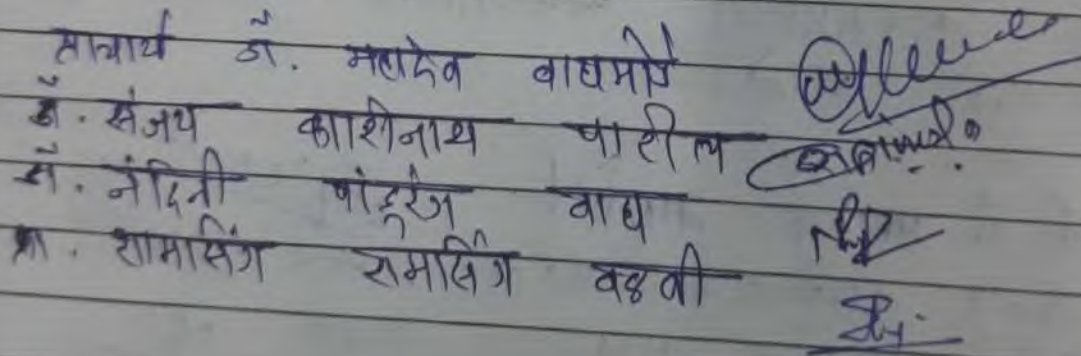 प्राचार्य डॉ. महादेव वाघमोडे
डॉ. संजय काशीनाथ पाटील
डॉ. नंदिनी पांडूरंग वाघ
प्रा. शामसिंग रामसिंग वळवी